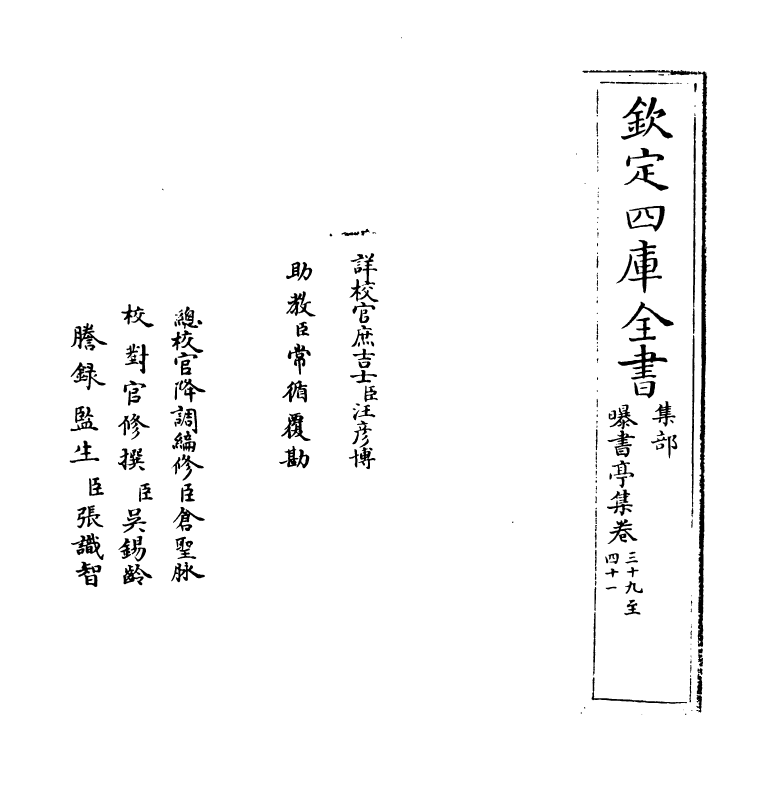 欽定四庫全書
集部
曝書亭集卷三十九至
四十一
詳校官庶吉士臣汪彦博
助教臣常循覆勘
總校官降調編修臣倉聖脉
校對官修撰臣吳錫齡
謄録監生臣張識智